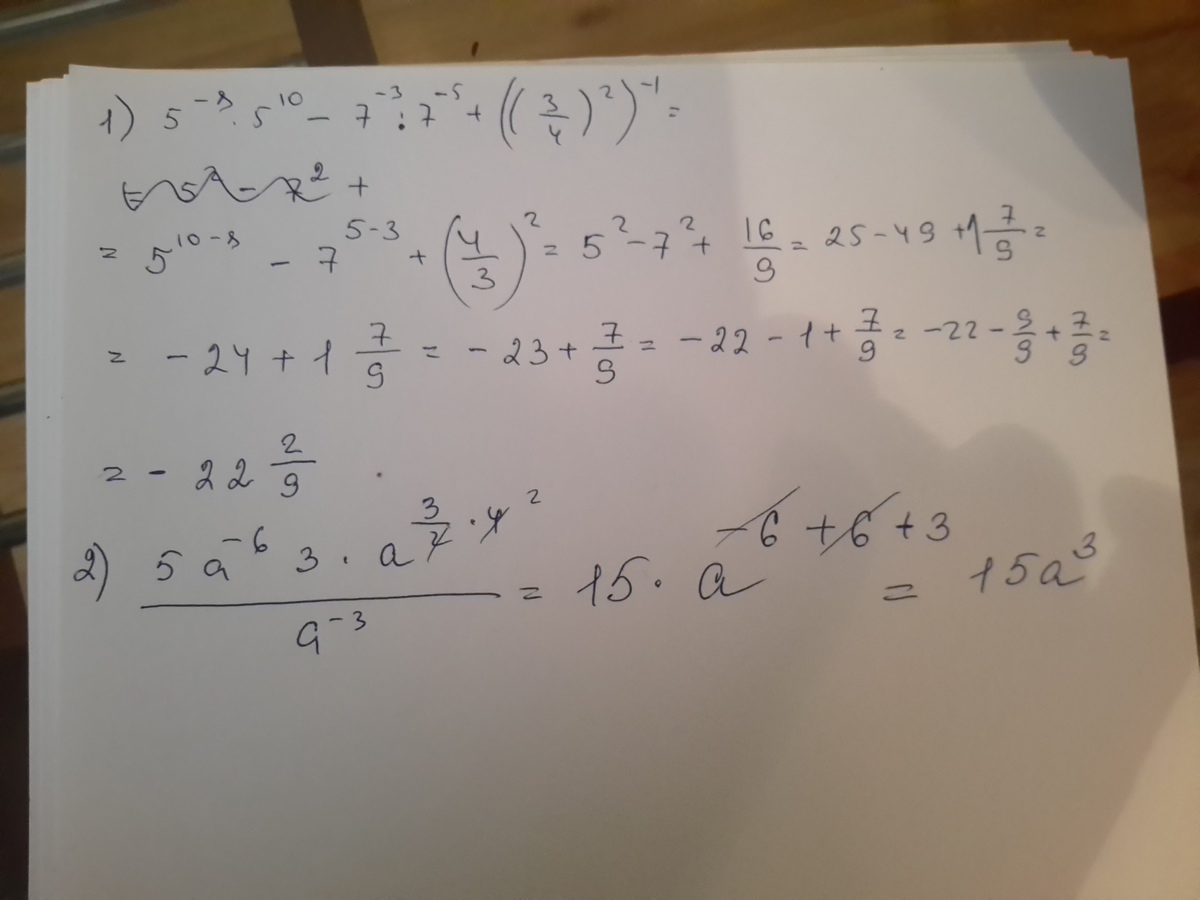 1) 5^{-8} · 5^{10} - 7^{-3} : 7^{-5} + ((3/4)^2)^{-1} =
= 5^2 - 7^2 +
= 5^{10-8} - 7^{5-3} + (4/3)^2 = 5^2 - 7^2 + 16/9 = 25 - 49 + 1 7/9 =
= - 24 + 1 7/9 = - 23 + 7/9 = - 22 - 1 + 7/9 = -22 - 9/9 + 7/9 =
= - 22 2/9
2) (5a^{-6} 3 · a^{3/2 · 4 2})/(a^{-3}) = 15 · a^{-6+6+3} = 15a^3